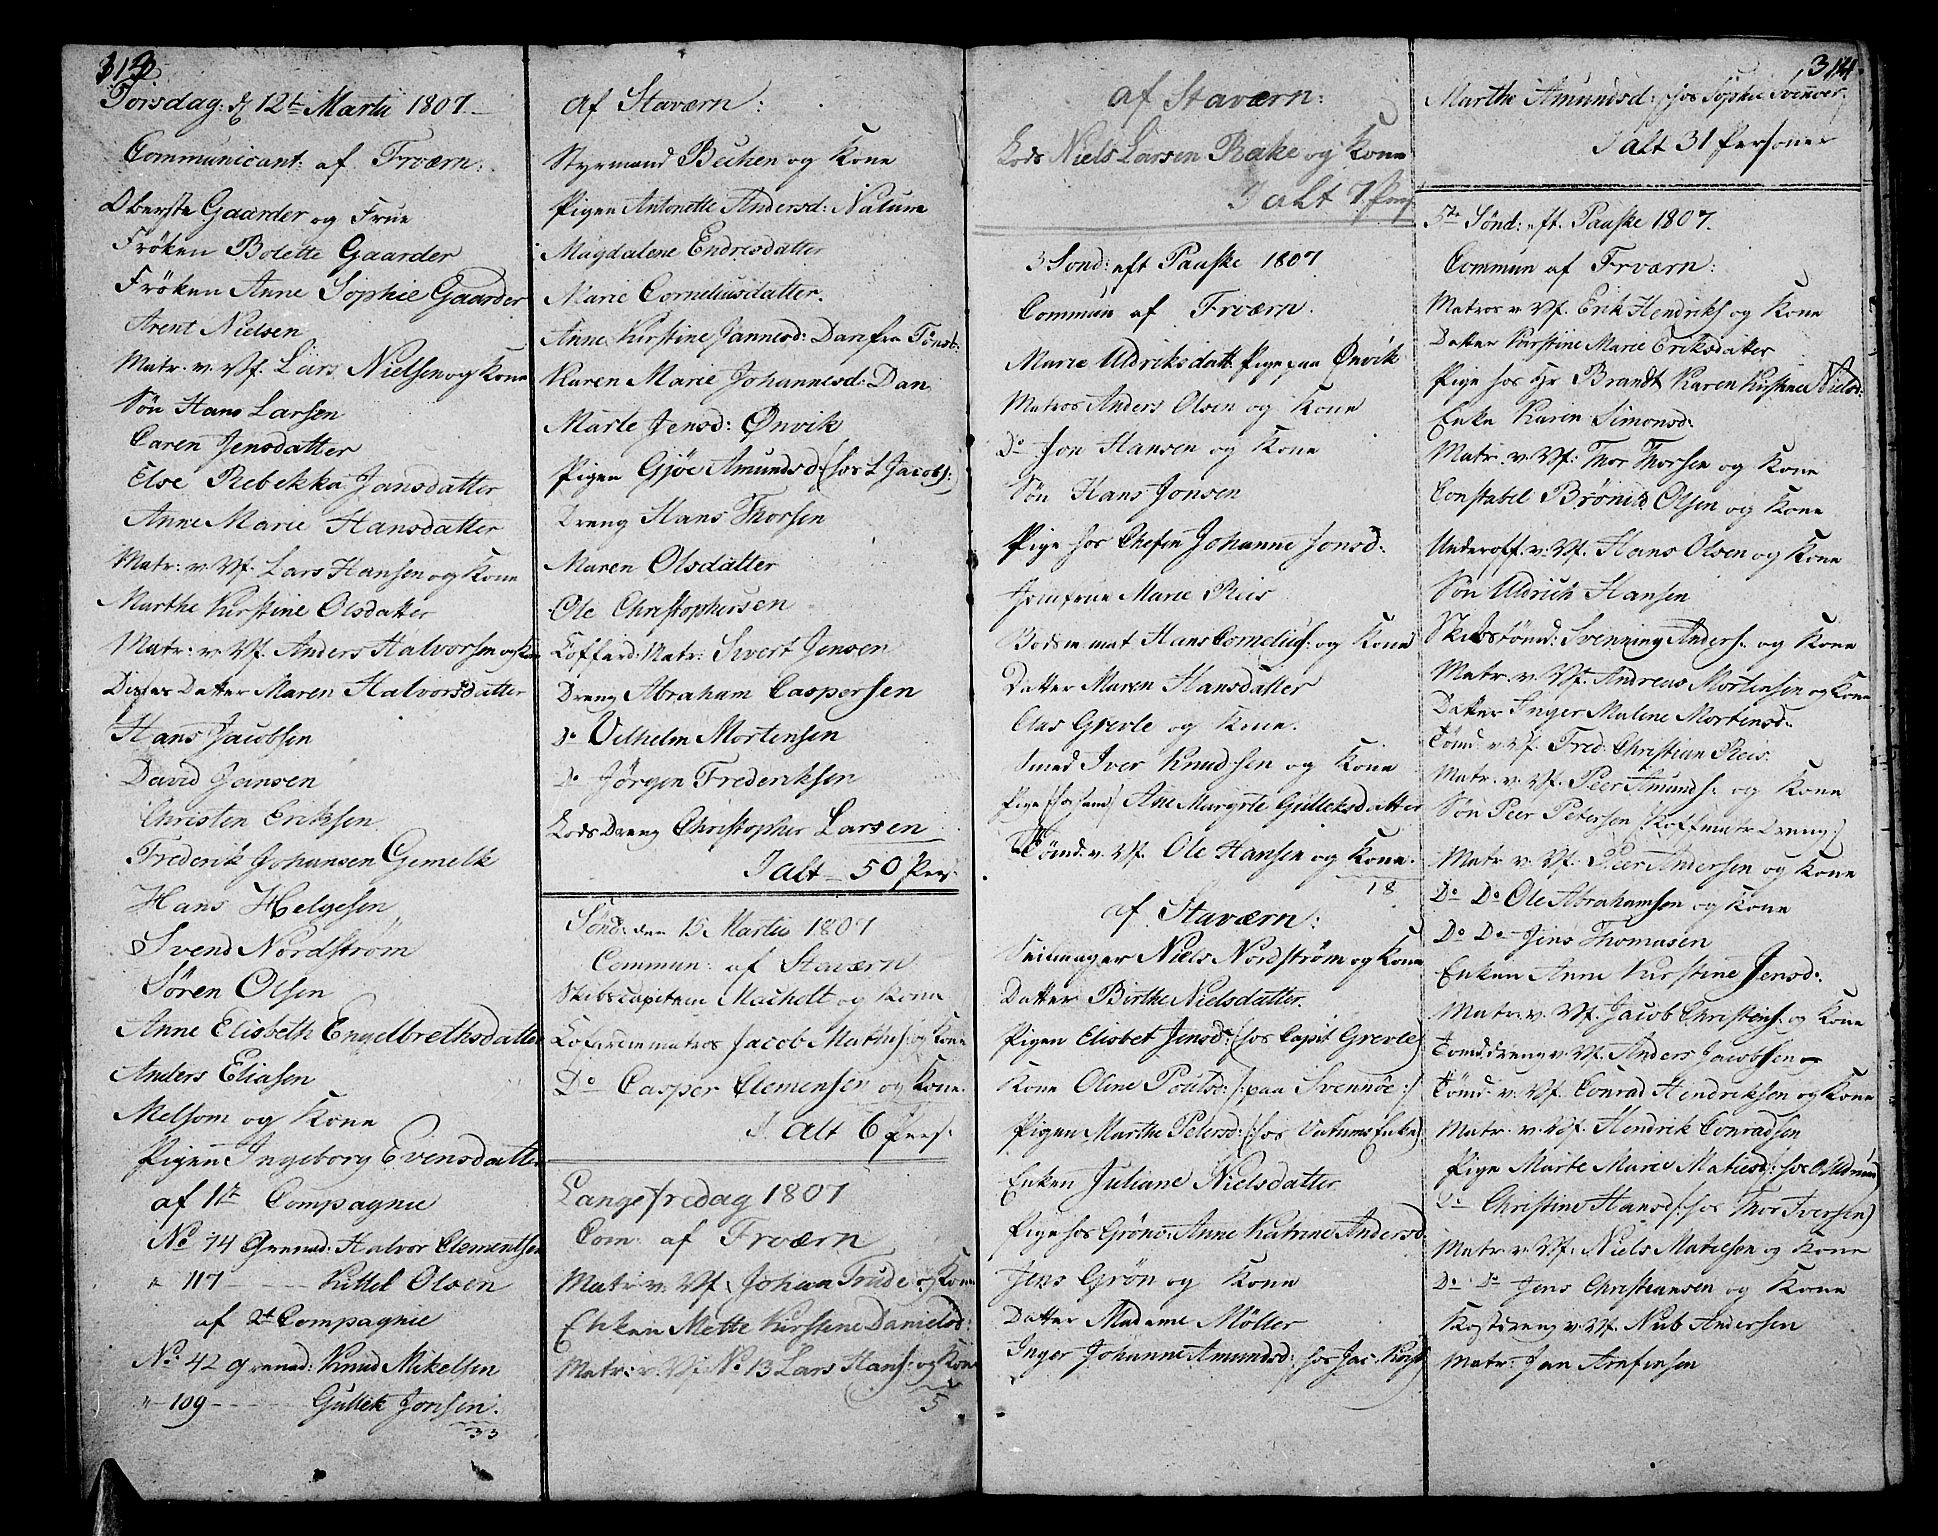 313
Torsdag d 12te Martii 1807.
Communicant: af Frværn:
Oberste Gaarder og Frue
Frøken Bolette Gaarder
Frøken Anne Sophie Gaarder
Arent Nielsen
Matr: v. Vf. Lars Nielsen og Kone
Søn Hans Larsen
Caren Jensdatter
Else Rebekka Jansdatter
Anne Marie Hansdatter
Matr: v. Vf. Lars Hansen og Kone
Marthe Kirstine Olsdatter
Matr: v. Vf. Anders Halvorsen og Kone
Disses Datter Maren Halvorsdatter
Hans Jacobsen
David Jensen
Christen Eriksen
Frederik Johansen Gemelk
Hans Helgesen
Svend Nordstrøm
Søren Olsen
Anne Elisbeth Engelbrethsdatter
Anders Eliasen
Melsom og Kone
Pigen Ingeborg Evensdatter
af 1te Compagnie
No 74 Grenad: Halvor Clementsen
" 117 - Kittel Olsen
af 2t Compagnie
No 42 Grenad: Knud Mikelsen
" 109 - Gullek Jonsen.
33
af Staværn:
Styrmand Bechen og Kone
Pigen Antonette Andersd: Natume
Magdalene Endresdatter
Marie Corneliusdatter.
Anne Kirstine Jannesd: Dan fra Tønsb:
Karen Marie Johannesd: Dan
Marte Jensd: Ønvik
Pigen Gjøe Amundsd (hos L Jacobs:)
Dreng Hans Thorsen
Maren Olsdatter
Ole Christophersen
Coffard: Matr: Sivert Jensen
Dreng Abraham Caspersen
Do Vilhelm Mortensen
Do Jørgen Frederiksen
Lods Dreng Christopher Larsen
I alt - 50 Pers.
Sønd: den 15 Martii 1807
Commun: af Staværn
Skibscapitain Macholt og Kone
Cofardiematros Jacob Mathis: og Kone
Do Casper Clemensen og Kone.
I alt 6 Pers:
Langefredag 1807
Com: af Frværn
Matr: v. Vf. Johan Trude og Kone
Enken Mette Kirstine Danielsd:
Matr: v. Vf. No 13 Lars Hans: og Kone
5
af Staværn:
Lods Niels Larsen Rake og Kone
I alt 7 Pers
3 Sond: eft Paaske 1807
Commun af Frværn.
Marie Uldriksdatt. Pige paa Ønvik
Matros Anders Olsen og Kone
Do Jon Hansen og Kone
Søn Hans Jonsen
Pige hos Chefen Johanne Jonsd:
Jomfrue Marie Reis
Bodsmmat Hans Cornelius: og Kone
Datter Maren Hansdatter
Clas Grevle og Kone.
Smed Iver Knudsen og Kone
Pige (hos ham) Ane Margrte Gulleksdatter
Tømd. v. Vf. Ole Hansen og Kone.
18
af Staværn:
Seilmager Niels Nordstrøm og Kone
Datter Birthe Nielsdatter.
Pigen Elisbet Jensd: (hos Capit Grevle)
Kone Oline Poulsd: /: paa Svennøe :/
Pigen Marthe Petersd: (hos Vatums Enke)
Enken Juliane Nielsdatter
Pige hos Grøns: Anne Katrine Andersd:
Jens Grøn og Kone
Datter Madame Møller
Inger Johanne Amundsd: hos Jac.
314
Marthe Amundsd: hos Sophie Svenøer
I alt 31 Personer
5te Sønd: eft. Paaske 1807.
Commun af Frværn:
Matros v. Vf. Erik Hendriks og Kone
Datter Kirstine Marie Eriksdatter
Pige hos Hr Brandt Karen Kirstine Nielsd:
Enke Karen Simonsd:
Matr: v. Vf: Thor Thorsen og Kone
Constabel Brønild Olsen og Kone
Underoff. v. Vf. Hans Olsen og Kone
Søn Uldrich Hansen
Skibstømd: Svenning Anders: og Kone
Matr: v. Vf. Andreas Mortensen og Kone
Datter Inger Malene Mortensd:
Tømd. v. Vf. Fred: Christian Reis
Matr: v. Vf. Peer Amunds: og Kone
Søn Peer Petersen /:Koffmatr Dreng:/
Matr: v. Vf. Peer Andersen og Kone
Do Do Ole Abrahamsen og Kone
Do Do Jens Thomasen
Enken Anne Kirstine Jensd:
Matr: v. Vf. Jacob Christens: og Kone
Tømd.dreng v. Vf. Anders Jacobsen
Tømd: v. Vf. Conrad Hendriksen og Kone
Matr: v. Vf. Hendrik Conradsen
Pige Marte Marie Matiesd: hos
Do Christine Hansd (: hos Thor Iversen)
Matr. v. Vf: Niels Matiesen og Kone
Do Do Jens Christiansen og Kone
Kogsdreng v. Vf. Nub Andersen
Matr: Jan Arnfinsen